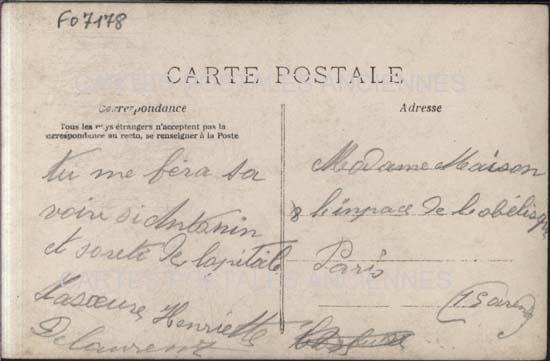 Fo7178
CARTE POSTALE
CARTES POSTALES ANCIENNES
Correspondance
Adresse
Tous les pays étrangers n'acceptent pas la
correspondance au recto, se renseigner à la Poste
tu me fera sa
voire si Antonin
et soreti de lapitale
ta soeure Henriette
Delaurent
Madame Maison
8 l'inpace de l'obélisque
Paris
(15 aren)
CARTES POSTALES ANCIENNES